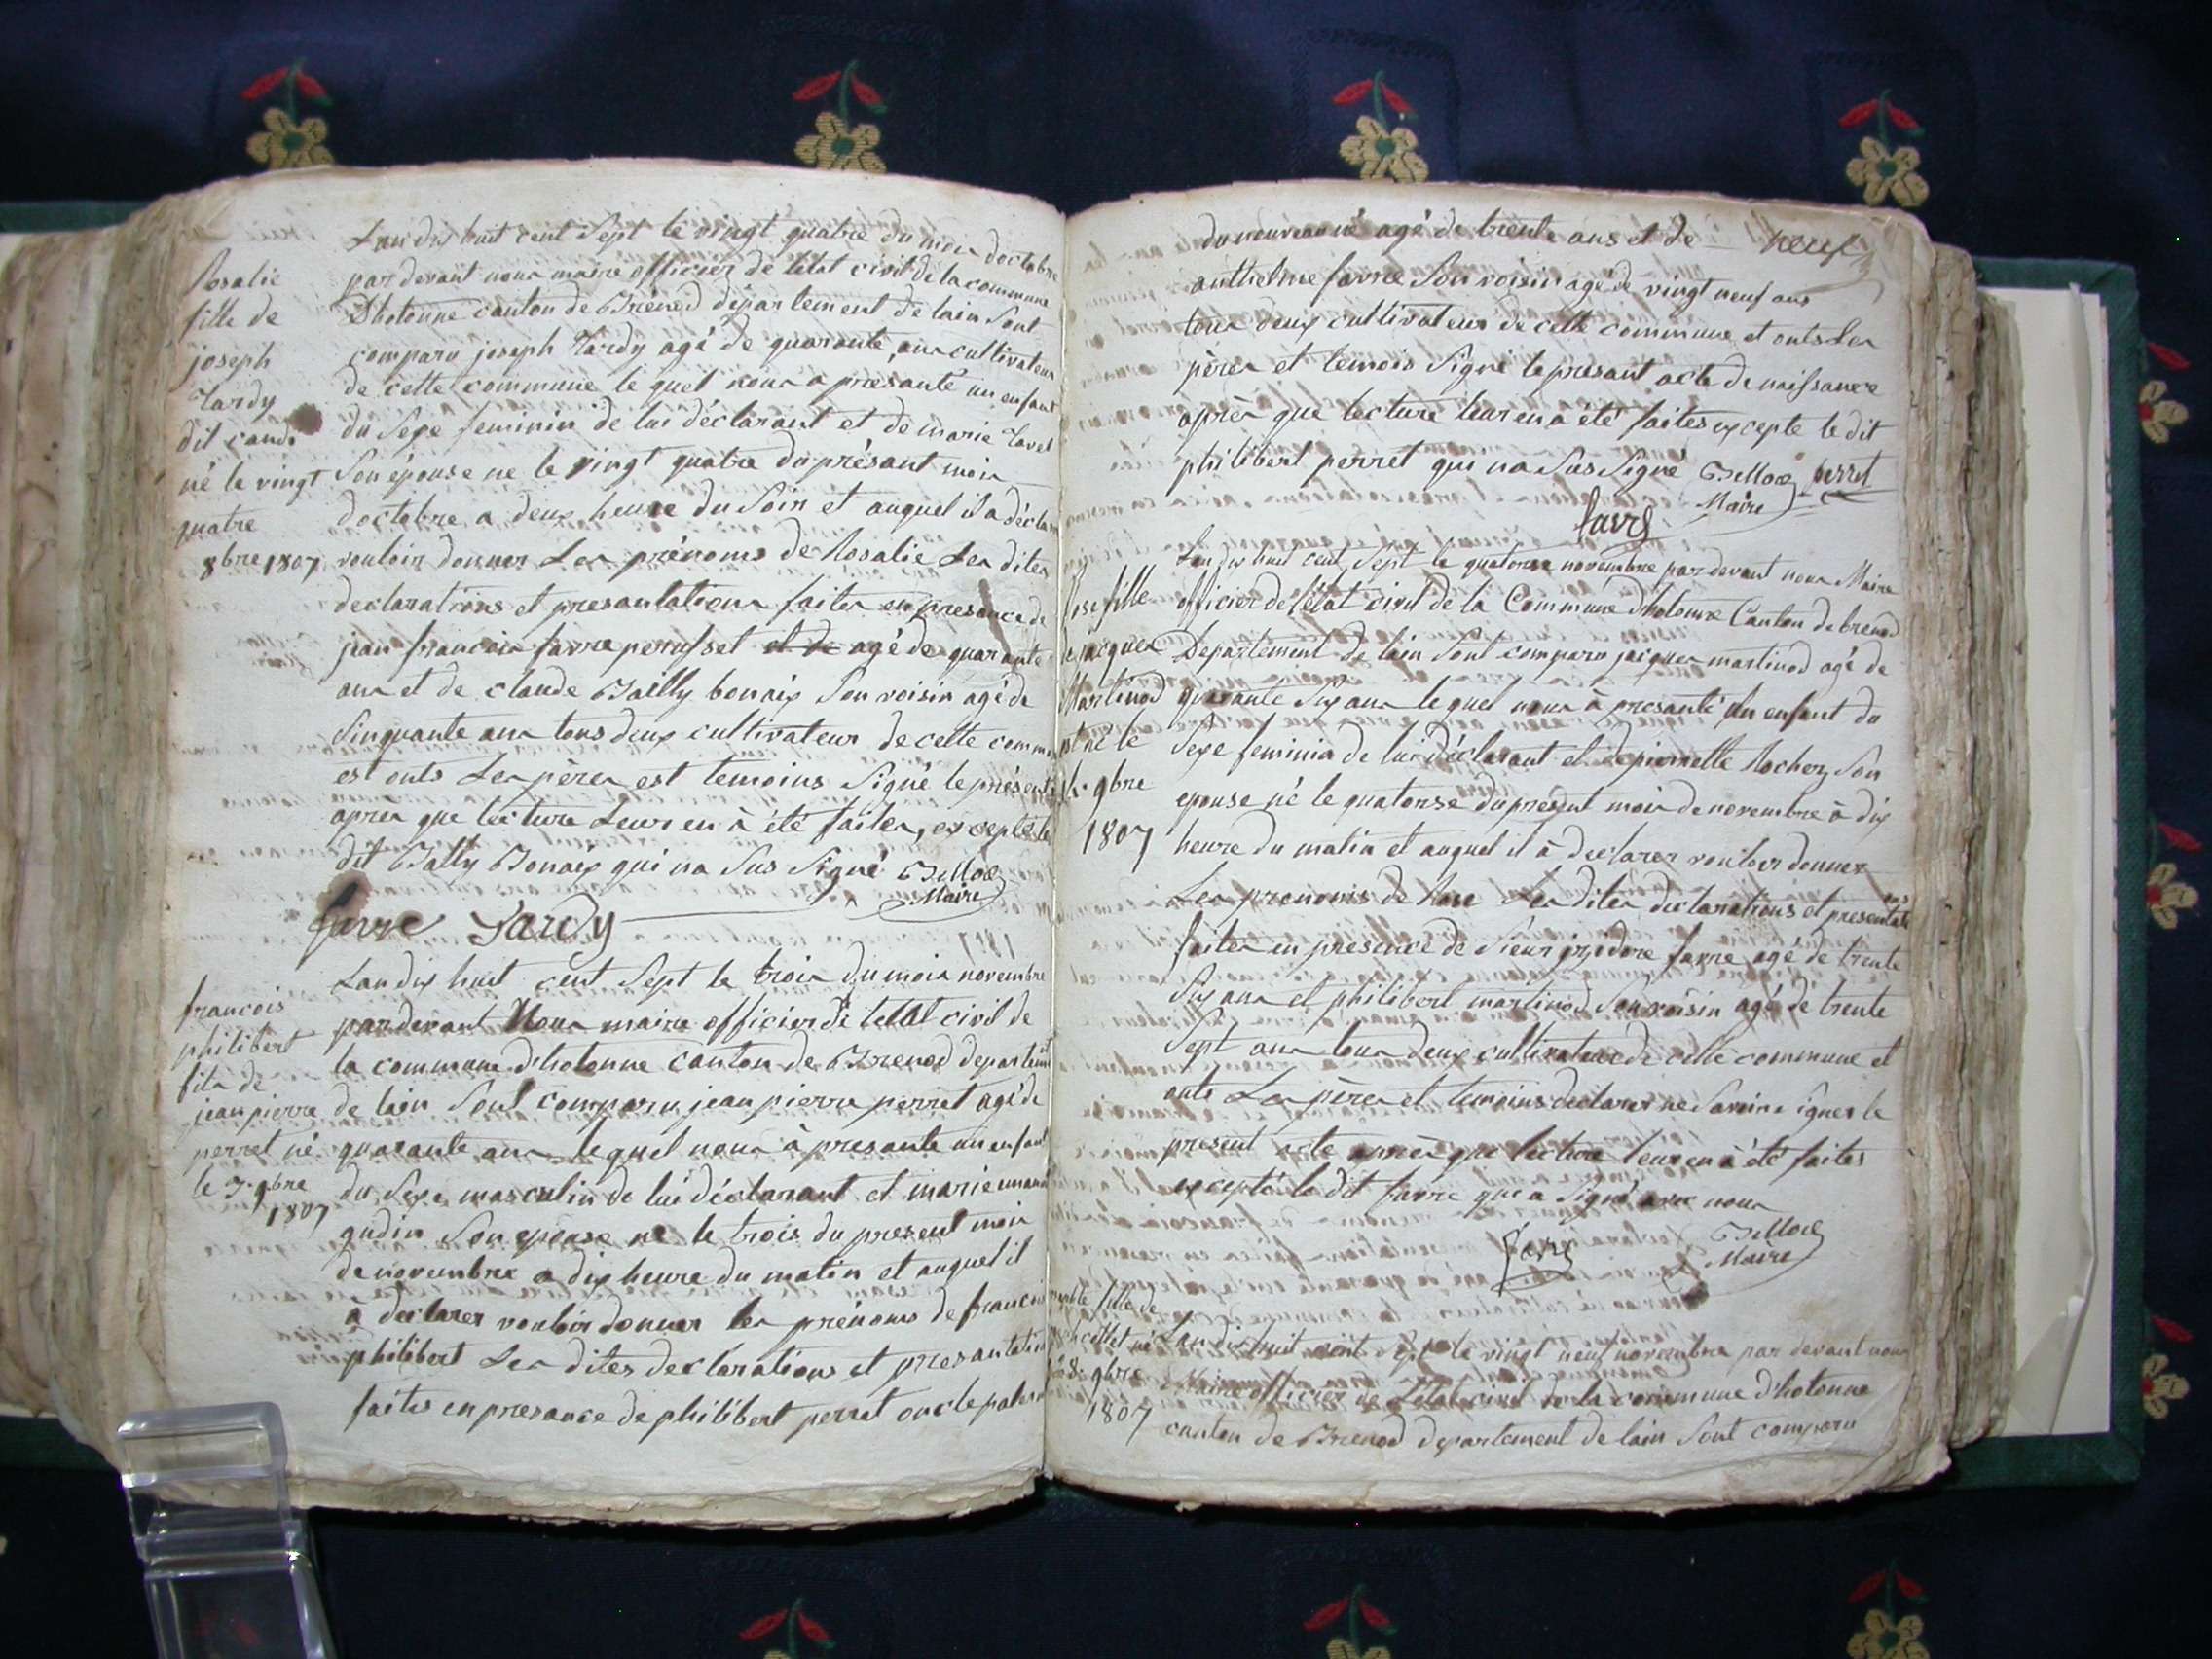 Lan dix huit cent Sept le vingt quatre du mois doctobre
par devant nous maire officier de létat civil de la commune
Dhotonne canton de Brénod département de lain Sont
comparu joseph Tardy agé de quarante ans cultivateur
de cette commune le quel nous a présanté un enfant
du Sexe feminin de lui déclarant et de marie Tavel
Son épouse ne le vingt quatre du présant mois
doctobre a deux heure du Soir et auquel il a déclaré
vouloir donner Les prénoms de Rosalie Les dites
declarations et presantations faites en presance de
jean francois favre perrusset et de agé de quarante
ans et de claude Bailly bonaix Son voisin agé de
Sinquante ans tous deux cultivateur de cette commu
est onts Les pères est temoins Signé le présent
apres que lecture Leur en à été faites, excepté le
dit Bally Bonaix qui na Sus Signé Belloz
Maire
favre Tardy
Rosalie
fille de
joseph
Tardy
dit cand
né le vingt
quatre
8bre 1807
Lan dix huit cent Sept le trois du mois novembre
par devant Nous maire officier de letat civil de
la commune d'hotonne canton de Brenod departement
de lain Sont comparu jean pierre perret agé de
quarante ans lequel nous à presante un enfant
du Sexe masculin de lui déclarant et marie
gudin Son epouse ne le trois du present mois
de novembre a dix heure du matin et auquel il
à declarer vouloir donner les prénoms de francois
philibert Les dites declarations et presantation
faites en presance de philibert perret oncle
francois
philibert
fils de
jean pierre
perret né
le 3. 9bre
1807
neuf
du nouveau né agé de trente ans et de
anthelme favre Son voisin agé de vingt neuf ans
tous deux cultivateur de cette commune et onts Les
pères et temois Signé le présant acte de naissance
après que lecture leur en a été faites excepte le dit
philibert perret qui na Sus Signé Belloz perret
Maire
favre
Lan dix huit cent Sept le quatorze novembre par devant nous Maire
officier de létat civil de la Commune d'hotonne Canton de brenod
Departement de lain Sont comparu jacques martinod agé de
quarante Six ans le quel nous à presanté un enfant du
Sexe feminin de lui déclarant et de pierrette Rochez Son
epouse né le quatorse du présent mois de novembre à dix
heure du matin et auquel il à declarer vouloir donner
Les prenoms de Rose Les dites declarations et presentations
faites en presence de Sieur izidore favre agé de trente
Six ans et philibert martinod Son voisin agé de trente
Sept ans tous deux cultivateur de cette commune et
onts Les pères et temoins declarer ne Savoir Signer le
present acte après que lecture leur en à été faites
excepté le dit favre que a Signé avec nous
favre Belloz
Maire
Rose fille
de jacques
Martinod
et né le
9bre
1807
Lan dix huit cent Sept le vingt neuf novembre par devant nous
Maire officier de Létat civil de la commune d'hotonne
canton de Brenod departement de lain Sont comparu
fille de
né
9bre
1807